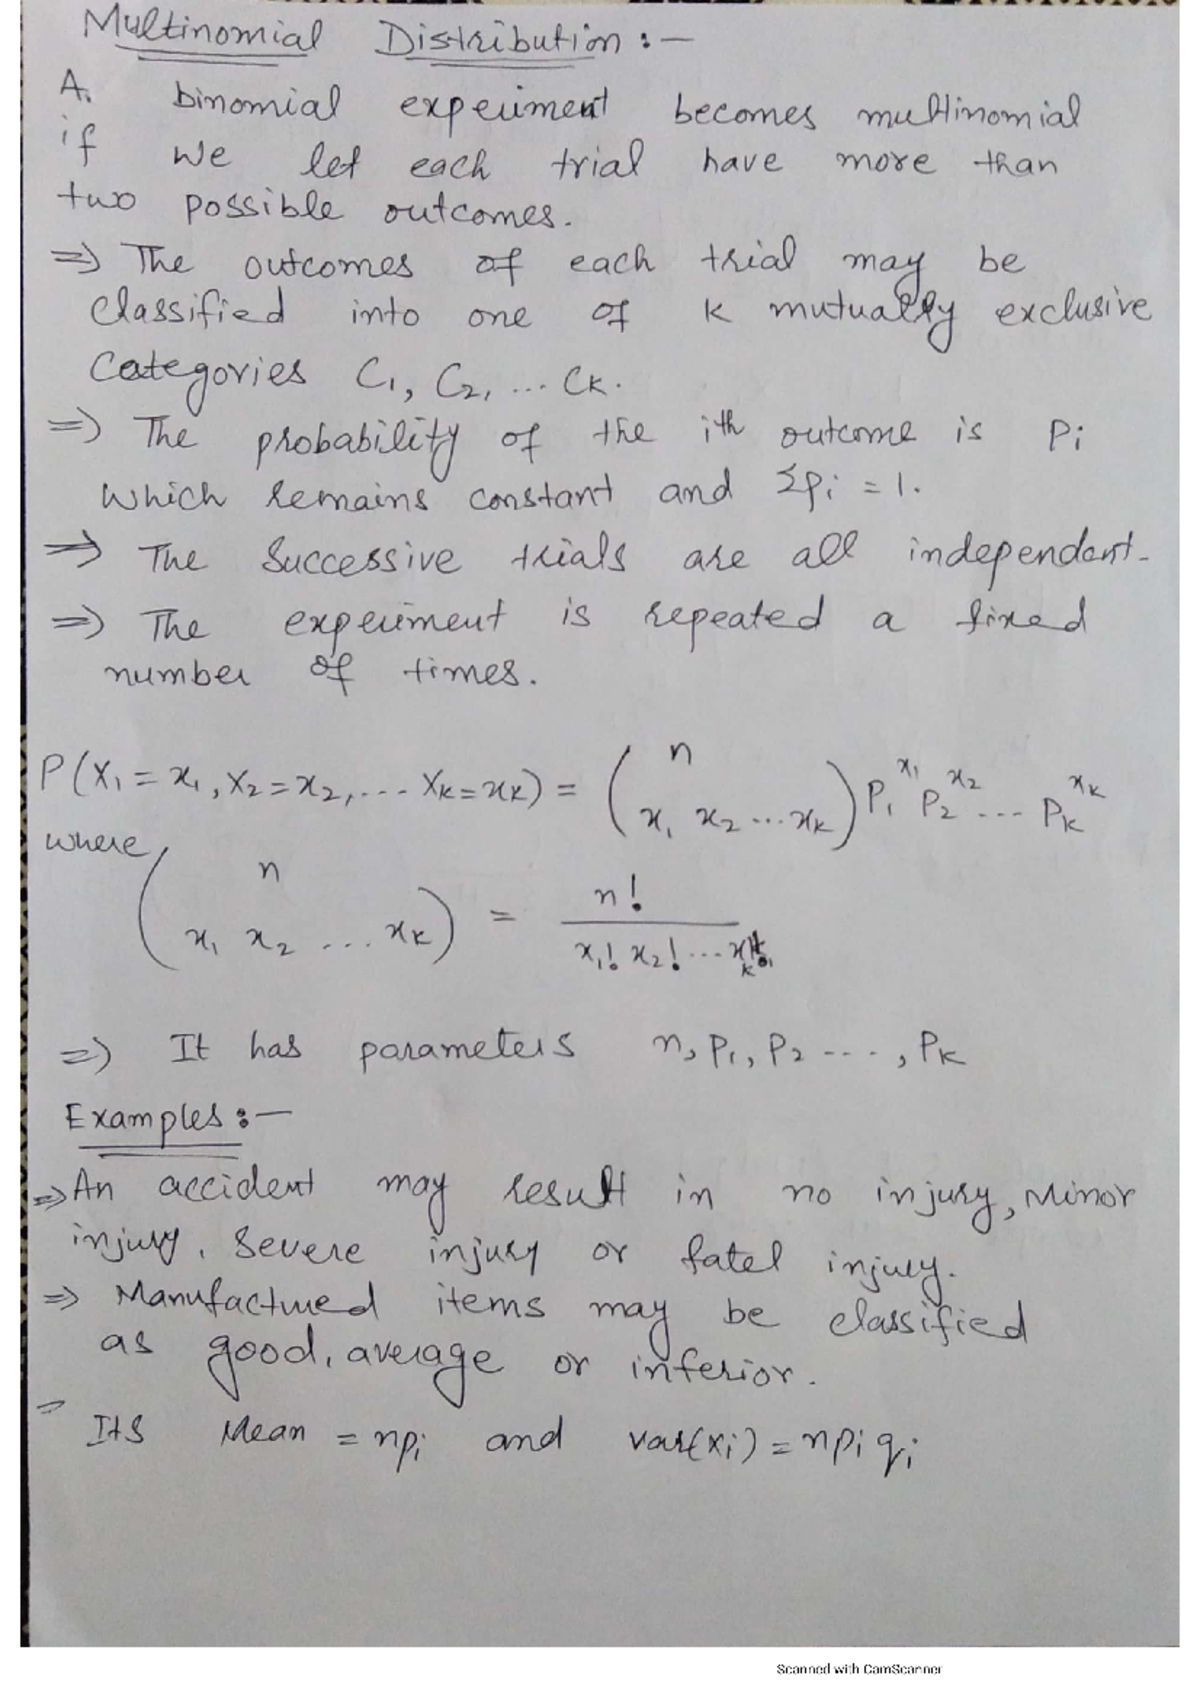 Multinomial Distribution :-
A. binomial experiment becomes multinomial
if we let each trial have more than
two possible outcomes.
=> The outcomes of each trial may be
classified into one of K mutually exclusive
Categories C₁, C₂, ... Cκ.
=> The probability of the ith outcome is Pi
which remains constant and Σpi = 1.
=> The Successive trials are all independent.
=> The experiment is repeated a fixed
number of times.
P(X₁ = x₁, X₂ = x₂, ... Xκ = xκ) = (n x₁ x₂ ... xκ) P₁^x₁ P₂^x₂ ... Pκ^xκ
where
(n x₁ x₂ ... xκ) = n! / x₁! x₂! ... xκ!
=> It has parameters n, P₁, P₂ ...., Pκ
Examples :-
=> An accident may result in no injury, Minor
injury, Severe injury or fatel injury.
=> Manufactured items may be classified
as good, average or inferior.
= Its Mean = npi and var(xi) = npi qi
Scanned with CamScanner